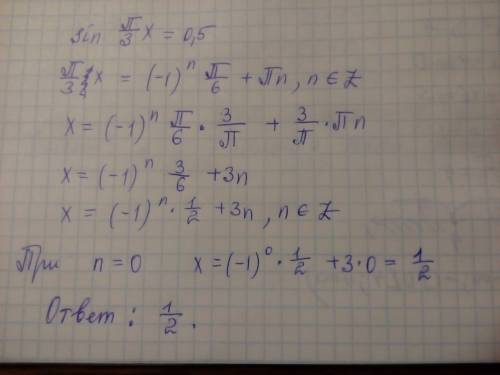 sin π/3 x = 0,5
π/3 x = (-1)^n π/6 + πn, n ∈ Z
x = (-1)^n π/6 · 3/π + 3/π · πn
x = (-1)^n 3/6 + 3n
x = (-1)^n · 1/2 + 3n, n ∈ Z
При n = 0 x = (-1)^0 · 1/2 + 3·0 = 1/2
Ответ: 1/2.